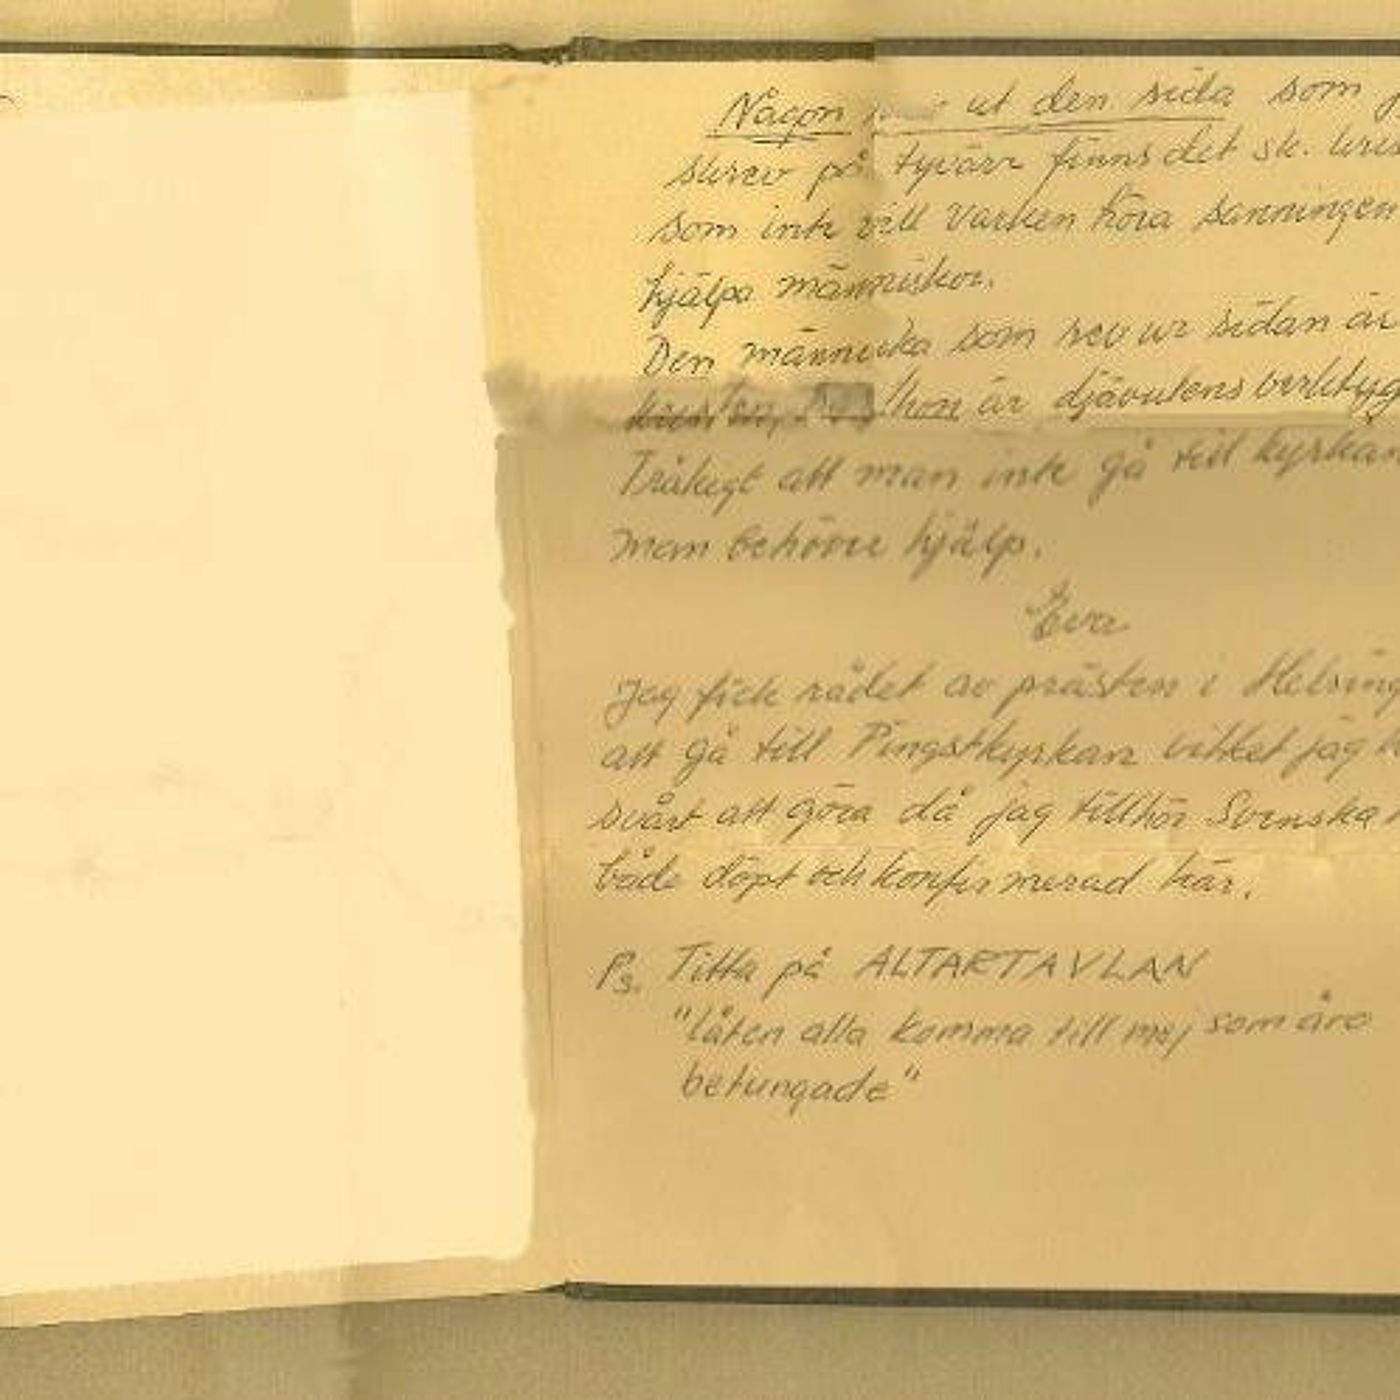 Någon ut den sida som j
skrev på, tyvärr finns det sk. kris
som inte vill varken höra sanningen
hjälpa människor.
Den människa som rev ur sidan är
hon är djävulens verktyg
Tråkigt att man inte gå till kyrkan
man behöver hjälp.
Eva
Jag fick rådet av prästen i Helsing
att gå till Pingstkyrkan vilket jag
svårt att göra då jag tillhör Svenska
både döpt och konfirmerad här.
Ps. Titta på ALTARTAVLAN
"låten alla komma till mej som äro
betungade"